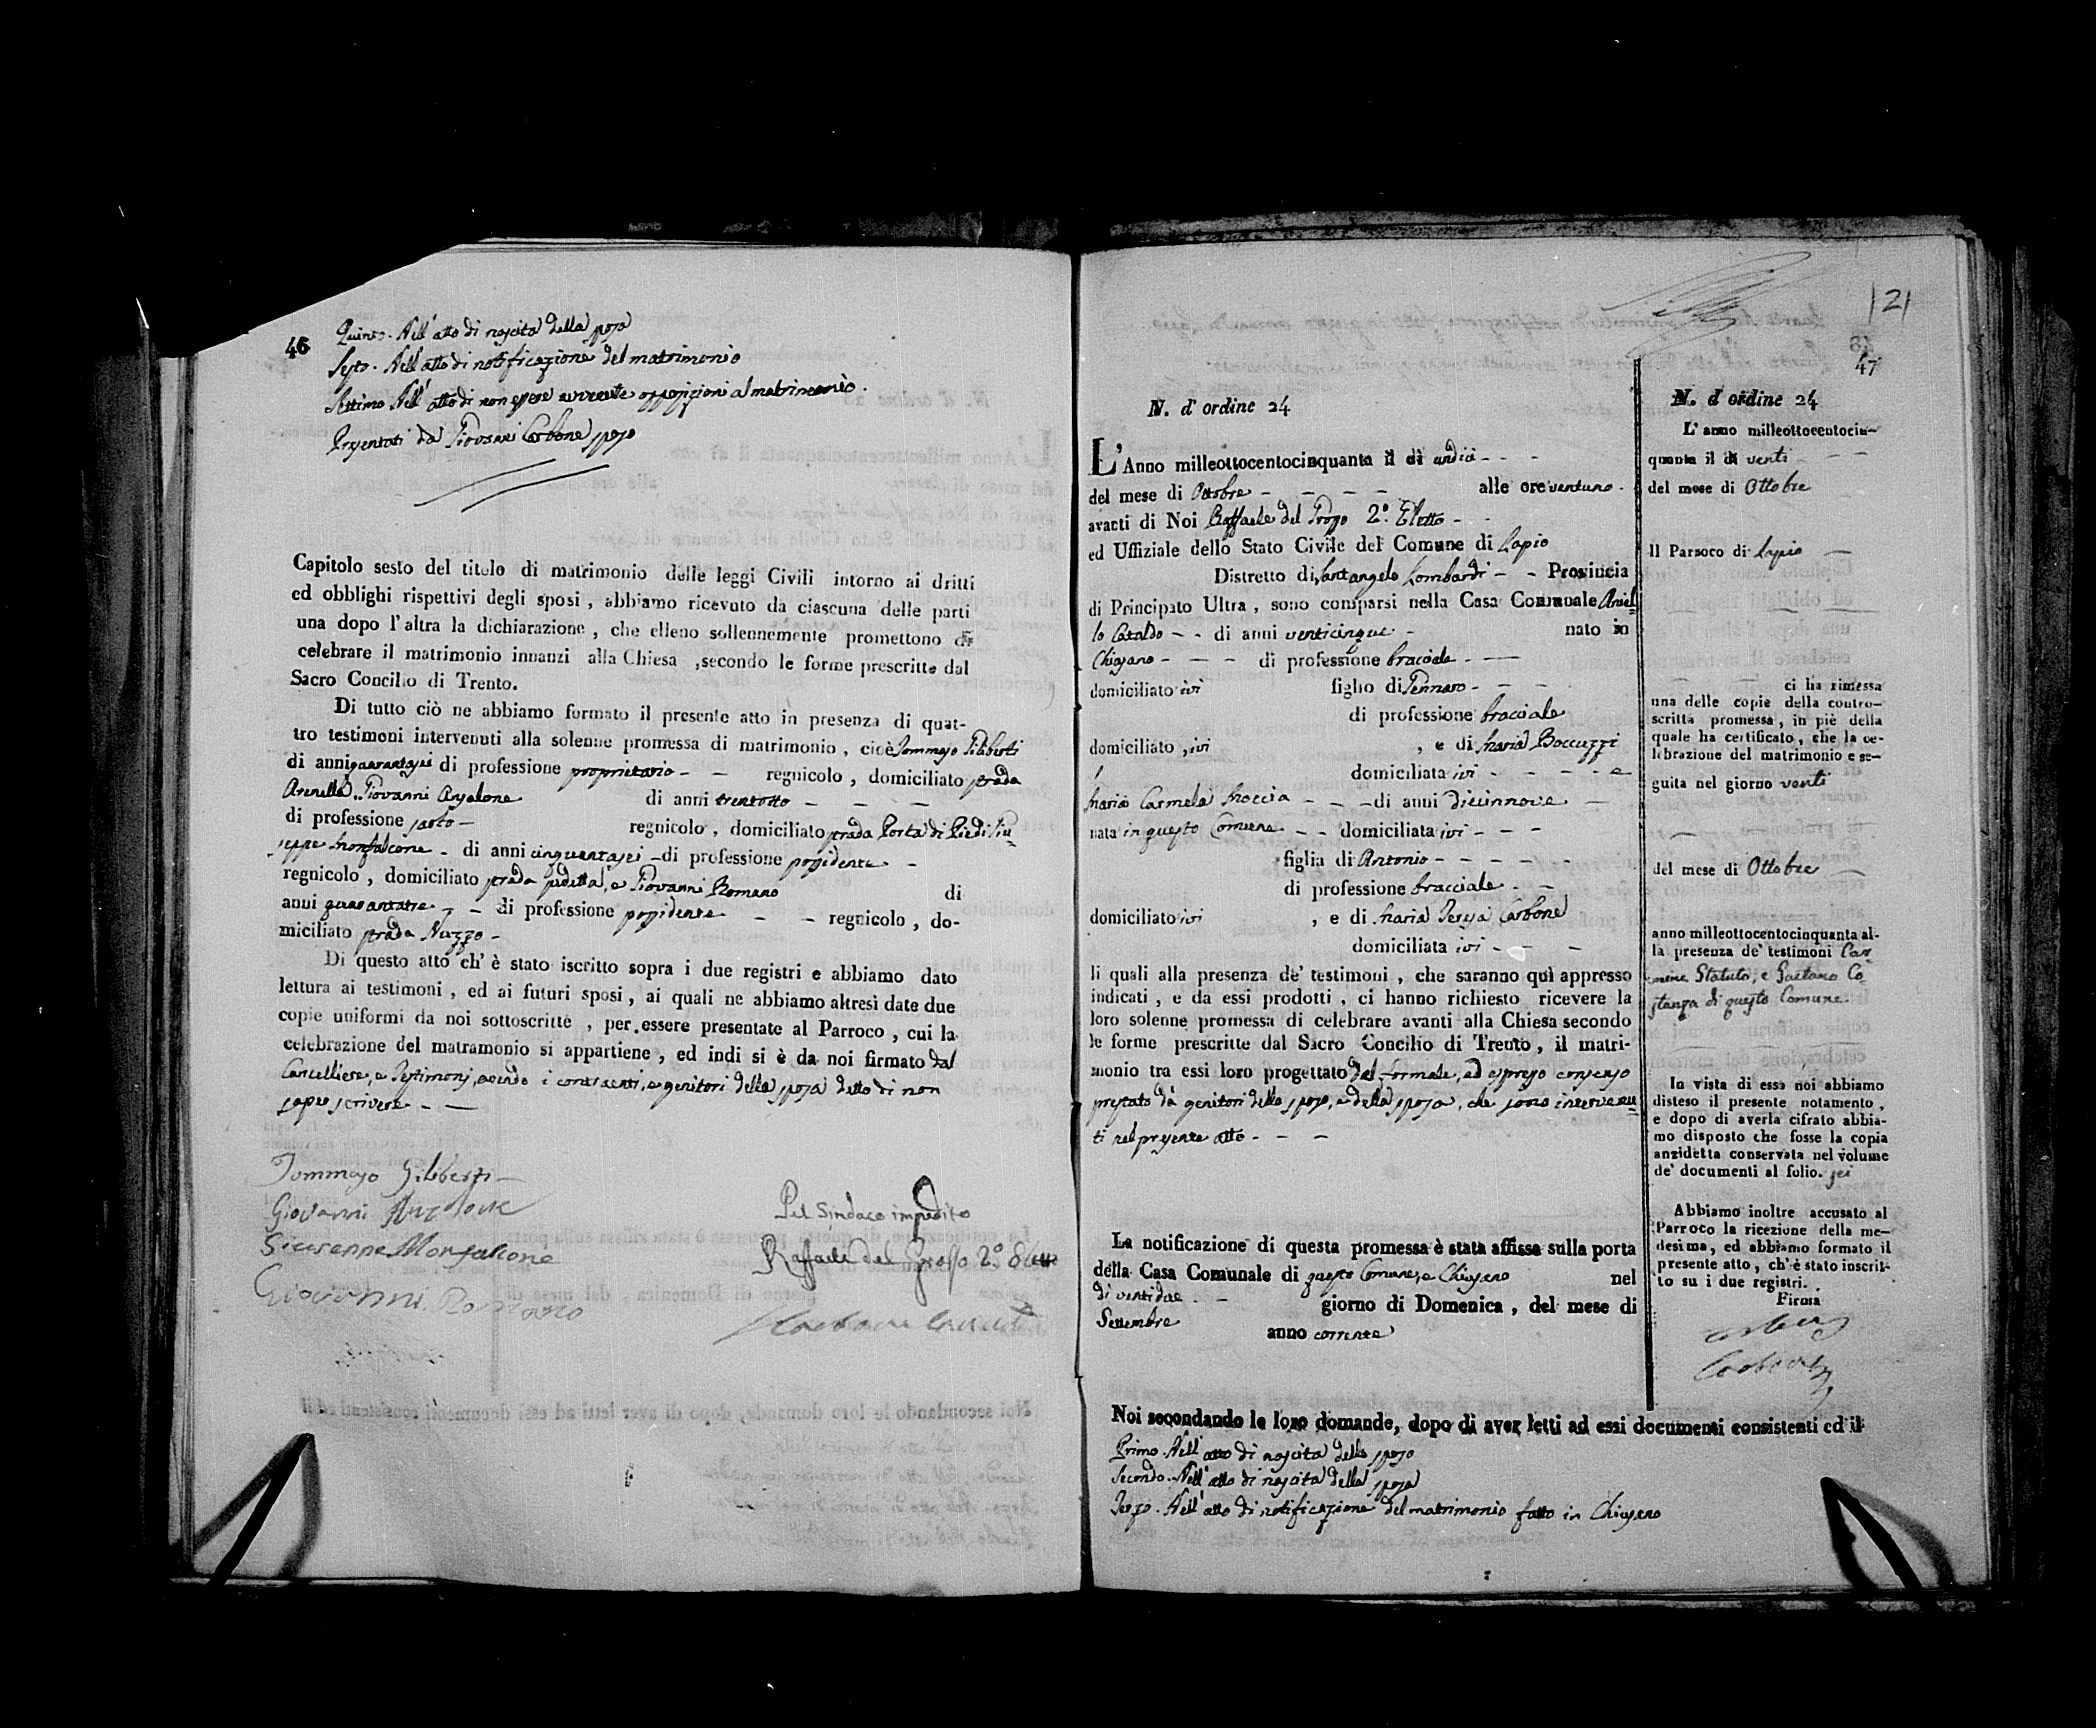 46
Quinto. Nell'atto di nascita della sposa
Sesto. Nell'atto di notificazione del matrimonio
Settimo Nell'atto di non essere avvenute opposizioni al matrimonio.
Presentati da Giovanni Carbone sposo
Capitolo sesto del titolo di matrimonio delle leggi Civili intorno ai dritti
ed obblighi rispettivi degli sposi, abbiamo ricevuto da ciascuna delle parti
una dopo l'altra la dichiarazione, che elleno sollennemente promettono di
celebrare il matrimonio innanzi alla Chiesa, secondo le forme prescritte dal
Sacro Concilio di Trento.
Di tutto ciò ne abbiamo formato il presente atto in presenza di quat-
tro testimoni intervenuti alla solenne promessa di matrimonio, cioè Tommaso Giliberti
di anni quarantasei di professione proprietario - - regnicolo, domiciliato strada
Arenella, Giovanni Anzalone di anni trentotto - - -
di professione sarto - regnicolo, domiciliato strada Porta di Piedi Giu=
seppe Monfalcone - di anni cinquantasei - di professione possidente -
regnicolo, domiciliato strada , e Giovanni Romano di
anni quarantatre - - di professione possidente - - regnicolo, do-
miciliato strada Nuzzo -
Di questo atto ch'è stato iscritto sopra i due registri e abbiamo dato
lettura ai testimoni, ed ai futuri sposi, ai quali ne abbiamo altresì date due
copie uniformi da noi sottoscritte, per essere presentate al Parroco, cui la
celebrazione del matramonio si appartiene, ed indi si è da noi firmato dal
Cancelliere, e Testimonj, avendo i contraenti, e genitori della sposa detto di non
saper scrivere - -
Tommaso Giliberti
Giovanni Anzalone
Giuseppe Monfalcone
Giovanni Romano
Pel Sindaco impedito
Raffaele del Grosso 2.° Eletto
121
47
N. d'ordine 24
L'Anno milleottocentocinquanta il dì undici - - -
del mese di Ottobre - - - - alle ore ventuno -
avanti di Noi Raffaele del Grosso 2.° Eletto -
ed Uffiziale dello Stato Civile del Comune di Lapio
Distretto di Santangelo Lombardi - - Provincia
di Principato Ultra, sono comparsi nella Casa Comunale Aniel=
lo Cataldo - - di anni venticinque - nato in
Chiusano - - - di professione bracciale - -
domiciliato ivi figlio di Gennaro - - -
di professione bracciale
domiciliato, ivi , e di Maria Boccuzzi
domiciliata ivi - - - - e
Maria Carmela Moccia - - - di anni diecinnove -
nata in questo Comune - - domiciliata ivi - - -
figlia di Antonio - - - - -
di professione bracciale - -
domiciliato ivi , e di Maria Teresa Carbone
domiciliata ivi - - -
li quali alla presenza de' testimoni, che saranno quì appresso
indicati, e da essi prodotti, ci hanno richiesto ricevere la
loro solenne promessa di celebrare avanti alla Chiesa secondo
le forme prescritte dal Sacro Concilio di Trento, il matri-
monio tra essi loro progettato dal formale, ed espresso consenso
prestato dà genitori dello sposo, e della sposa, che sono intervenu=
ti nel presente atto - - -
La notificazione di questa promessa è stata affissa sulla porta
della Casa Comunale di questo Comune, e Chiusano nel
dì ventidue - - giorno di Domenica, del mese di
Settembre anno corrente
Noi secondando le loro domande, dopo di aver letti ad essi documenti consistenti ed il
Primo. Nell'atto di nascita dello sposo
Secondo. Nell'atto di nascita della sposa
Terzo. Nell'atto di notificazione del matrimonio fatto in Chiusano
N. d'ordine 24
L'anno milleottocentocin-
quanta il dì venti - -
del mese di Ottobre
Il Parroco di Lapio -
ci ha rimessa
una delle copie della contro-
scritta promessa, in piè della
quale ha certificato, che la ce-
lebrazione del matrimonio e se-
guita nel giorno venti
del mese di Ottobre -
anno milleottocentocinquanta al-
la presenza de' testimoni Car=
mine Statuto, e Gaetano Co=
stanza di questo Comune.
In vista di essa noi abbiamo
disteso il presente notamento,
e dopo di averla cifrato abbia-
mo disposto che fosse la copia
anzidetta conservata nel volume
de' documenti al folio. sei
Abbiamo inoltre accusato al
Parroco la ricezione della me-
desima, ed abbiamo formato il
presente atto, ch'è stato inscrit-
to su i due registri.
Firma